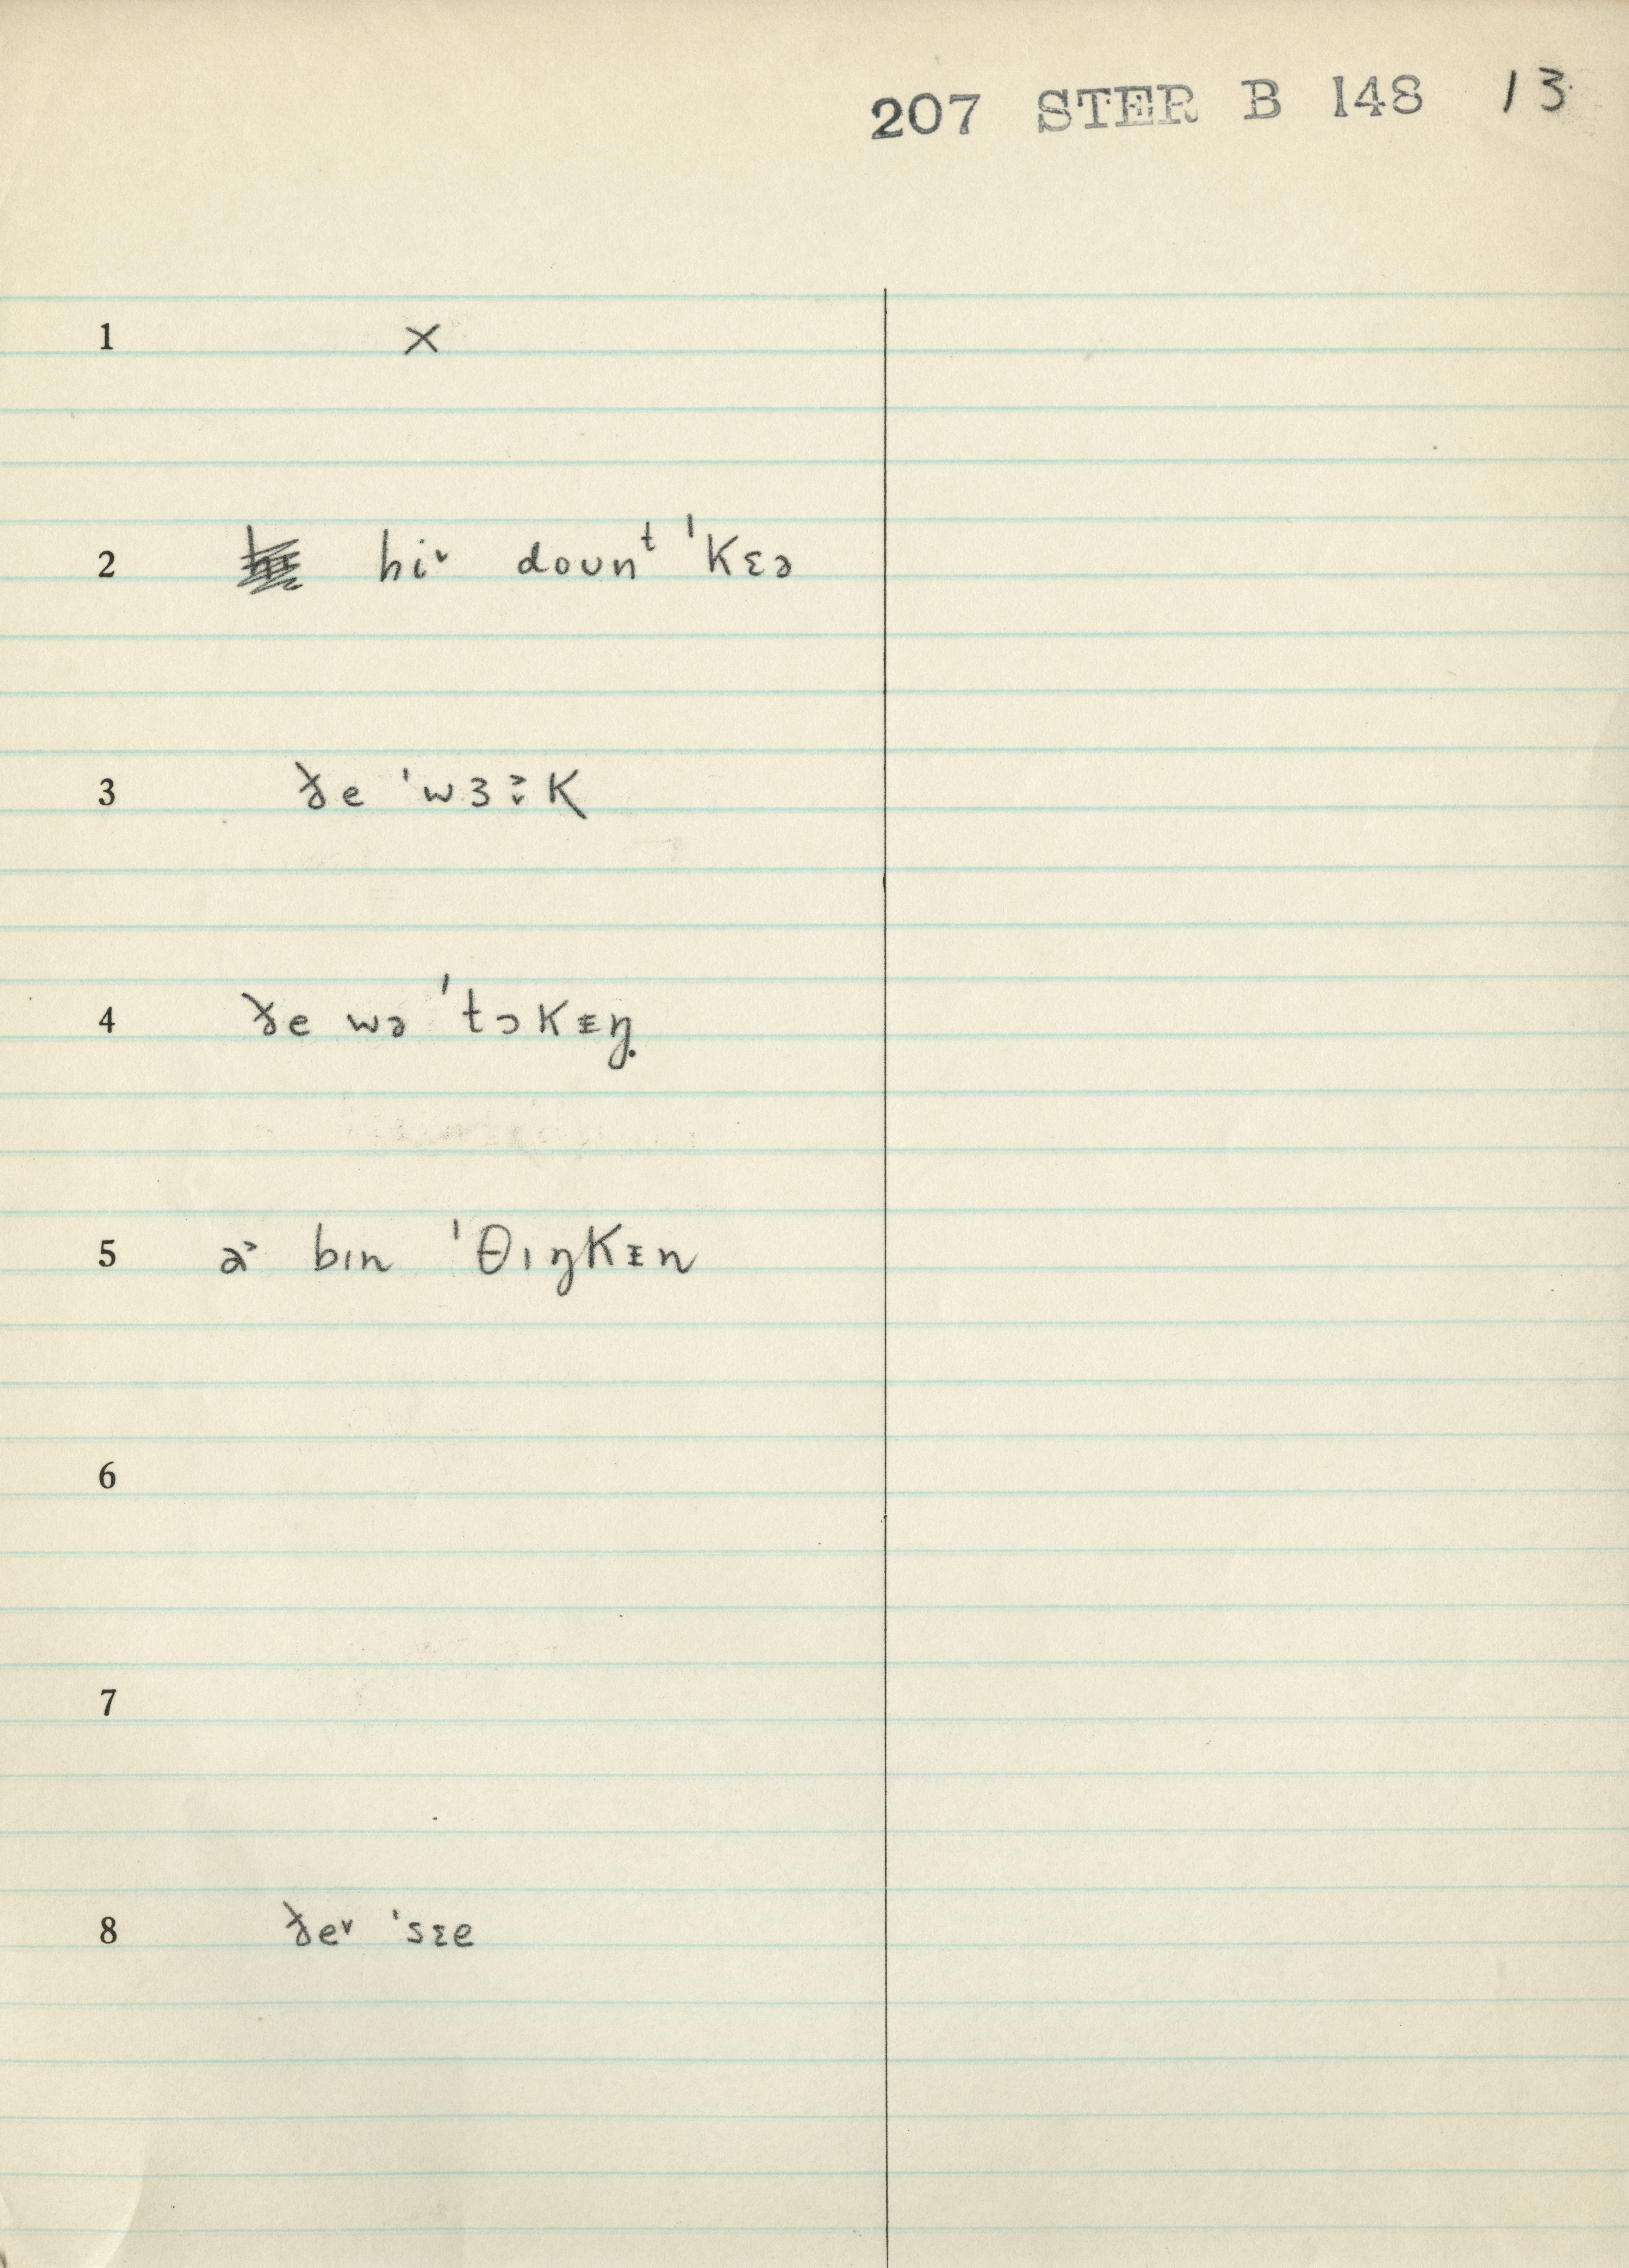 207 STER B 148 13
1 ×
2 hi˅ doʊnᵗ ˈkɛə
3 ðe ˈwɜ˞ːk
4 ðe wə ˈtɔkᵻŋ
5 a˃ bɪn ˈθɪŋkᵻn
6
7
8 ðe˅ ˈsɛe